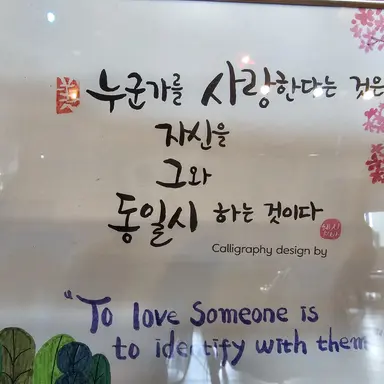 누군가를 사랑한다는 것은
자신을
그와
동일시 하는 것이다
Calligraphy design by
"To love Someone is
to identify with them